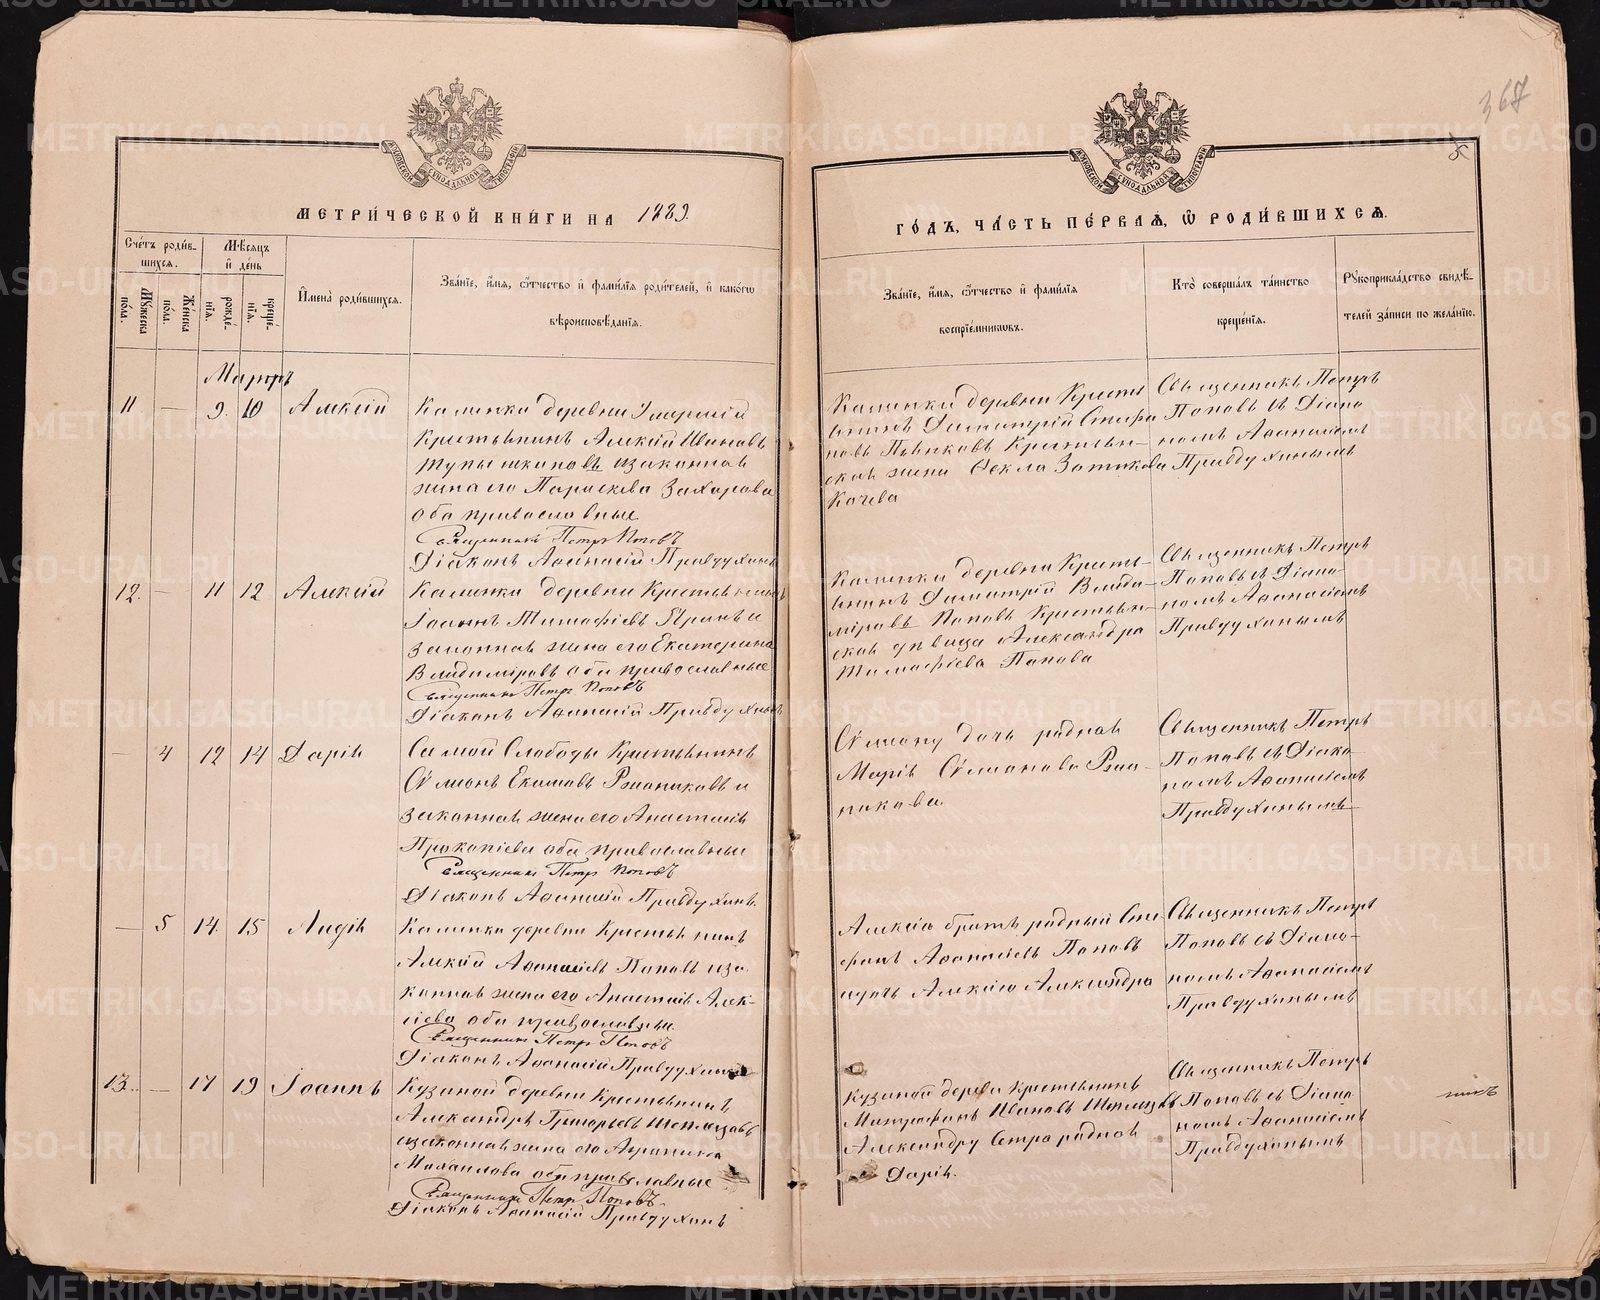 368
5
МОСКОВСКОЙ СѴНОДАЛЬНОЙ ТИПОГРАФІИ
МОСКОВСКОЙ СѴНОДАЛЬНОЙ ТИПОГРАФІИ
МЕТРИ́ЧЕСКОЙ КНИ́ГИ НА 1889.
ГО́ДЪ, ЧА́СТЬ ПЕ́РВАѦ, Ѡ҆ РОДИ́ВШИХСѦ.
Сче́тъ роди́в-
шихсѧ.
Мѣ́сѧцъ
и҆ де́нь
Мꙋ́жеска
по́ла.
Же́нска
по́ла.
рожде́-
нїѧ.
креще́-
нїѧ.
И҆мена̀ роди́вшихсѧ.
Зва́нїе, и҆́мѧ, ѻ҆́тчество и҆ фамі́лїѧ роди́телей, и҆ како́гѡ
вѣроисповѣ́данїѧ.
Зва́нїе, и҆́мѧ, ѻ҆́тчество и҆ фамі́лїѧ
воспрїе́мникѡвъ.
Кто̀ соверша́лъ та́инство
креще́нїѧ.
Рꙋкоприкла́дство свидѣ́-
телей за́писи по жела́нїю.
Мартъ
11 — 9. 10 Алексій
Калинки деревни
Крестьянинъ Алексій Ивановъ
и законная
жена его Параскева Захарова
оба православные
Священникъ Петръ Поповъ
Діаконъ Аѳанасій Правдухинъ
Калинки деревни Кресть
янинъ Димитрій Стефа
новъ Крестьян-
ская жена Ѳекла
Священникъ Петръ
Поповъ съ Діако
номъ Аѳанасіемъ
Правдухинымъ
12. — 11 12 Алексій
Калинки деревни Крестьянинъ
Іоаннъ Тимофѣевъ и
законная жена его Екатерина
Владимірова оба православные
Священникъ Петръ Поповъ
Діаконъ Аѳанасій Правдухинъ
Калинки деревни Кресть-
янинъ Димитрій Влади-
міровъ Поповъ Крестьян-
ская дѣвица Александра
Тимофѣева Попова
Священникъ Петръ
Поповъ съ Діако-
номъ Аѳанасіемъ
Правдухинымъ
— 4 12 14 Дарія
Самой Слободы Крестьянинъ
Сѵмеонъ Екимовъ и
законная жена его Анастасія
Прокопіева оба православные
Священникъ Петръ Поповъ
Діаконъ Аѳанасій Правдухинъ
Сѵмеону дочь родная
Марія Сѵмеонова
Священникъ Петръ
Поповъ съ Діако-
номъ Аѳанасіемъ
Правдухинымъ
— 5 14. 15 Лидія
Калинки деревни Крестьянинъ
Алексій Аѳанасіевъ Поповъ и за-
конная жена его Анастасія Алек-
сіева оба православные
Священникъ Петръ Поповъ
Діаконъ Аѳанасій Правдухинъ
Алексію братъ родный Сте
фанъ Аѳанасіевъ Поповъ
и дочь Алексія Александра
Священникъ Петръ
Поповъ съ Діако-
номъ Аѳанасіемъ
Правдухинымъ
13. — 17 19 Іоаннъ
Кузиной деревни Крестьянинъ
Александръ Григорьевъ
и законная жена его Агрипина
Михаилова оба православные
Священникъ Петръ Поповъ
Діаконъ Аѳанасій Правдухинъ
Кузиной деревни Крестьянинъ
Митрофанъ Ивановъ
Александру сестра родная
Дарія.
Священникъ Петръ
Поповъ съ Діако
номъ Аѳанасіемъ
Правдухинымъ
METRIKI.GASO-URAL.RU